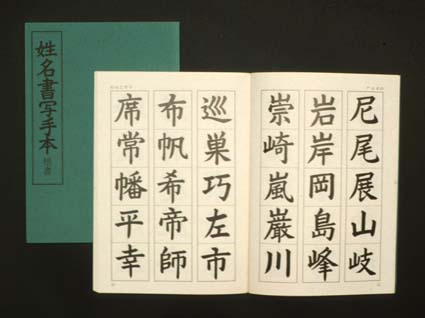 姓名書写手本
楷書
尼尾展山岐
岩岸岡島峰
崇崎嵐巌川
巡巣巧左市
布帆希帝師
席常幡平幸